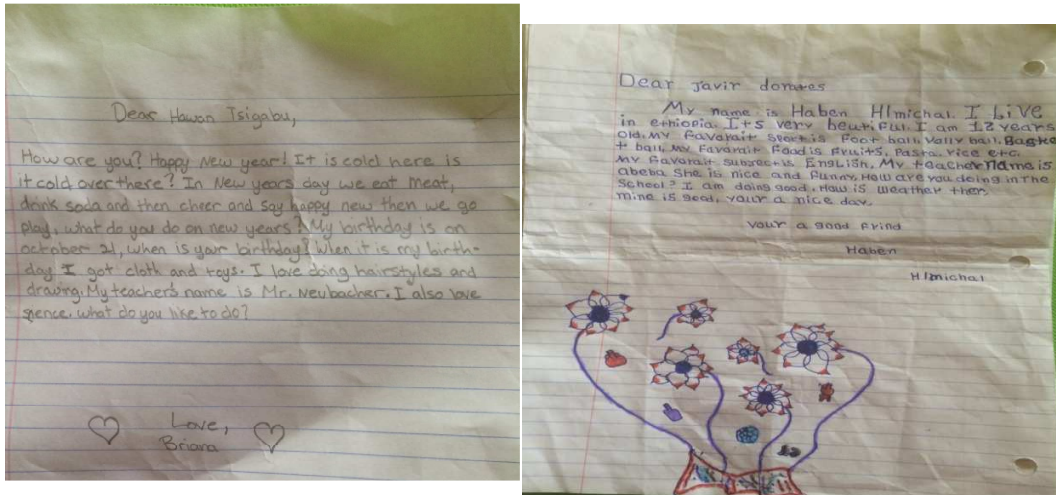 Dear Hawon Tsigabu,
How are you? Happy New year! It is cold here is
it cold over there? In New years day we eat meat,
drink soda and then cheer and say happy new then we go
play, what do you do on new years? My birthday is on
october 21, when is your birthday? When it is my birth-
day I got cloth and toys. I love doing hairstyles and
drawing. My teacher's name is Mr. Neubacher. I also love
what do you like to do?
Love,
Briana
Dear Javir donates
My name is Haben Hlmichal. I LiVe
in ethiopia. Its very beuti Ful. I am 12 years
old. My favarait sport is Foot ball, Vally ball, Baske
t ball, My Favarait Food is Fruits, Pasta, rice etc.
My Favarait subject is English, My teacher name is
abeba She is nice and Funny, How are you doing in The
School? I am doing good. How is weather ther,
mine is good, your a nice day.
your a good Frind
Haben
Hlmichal